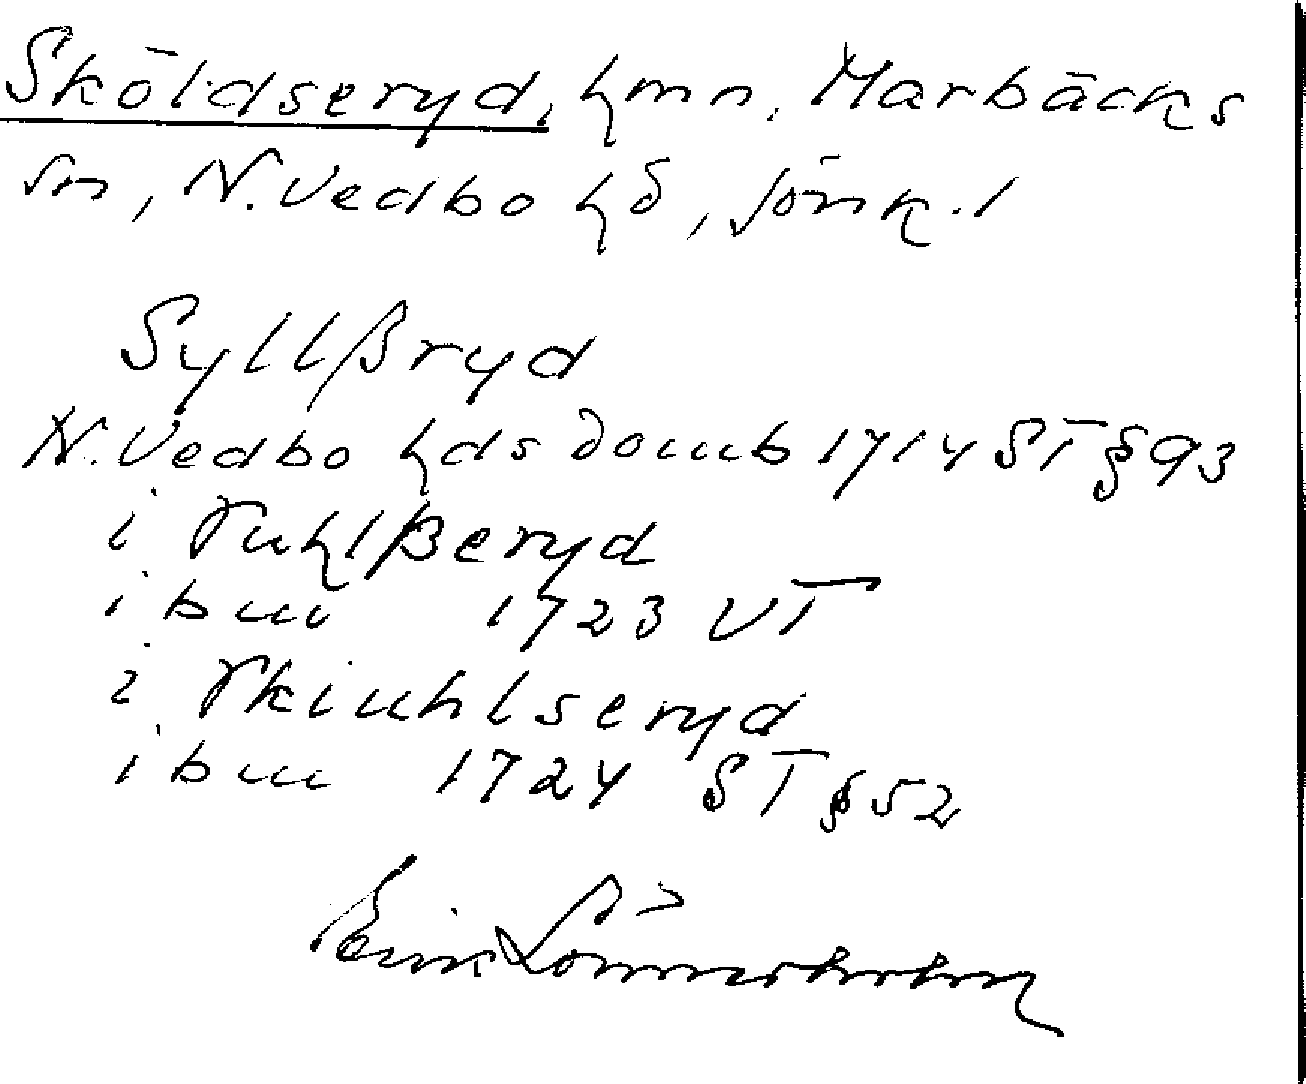 Sköldseryd, hmn, Marbäcks
sn, N. Vedbo hd, Jönk. l
Syllßryd
N. Vedbo hds domb 1714 ST § 93
i Tuhlßeryd
ibm 1723 VT
i Skiuhlseryd
ibm 1724 ST § 52